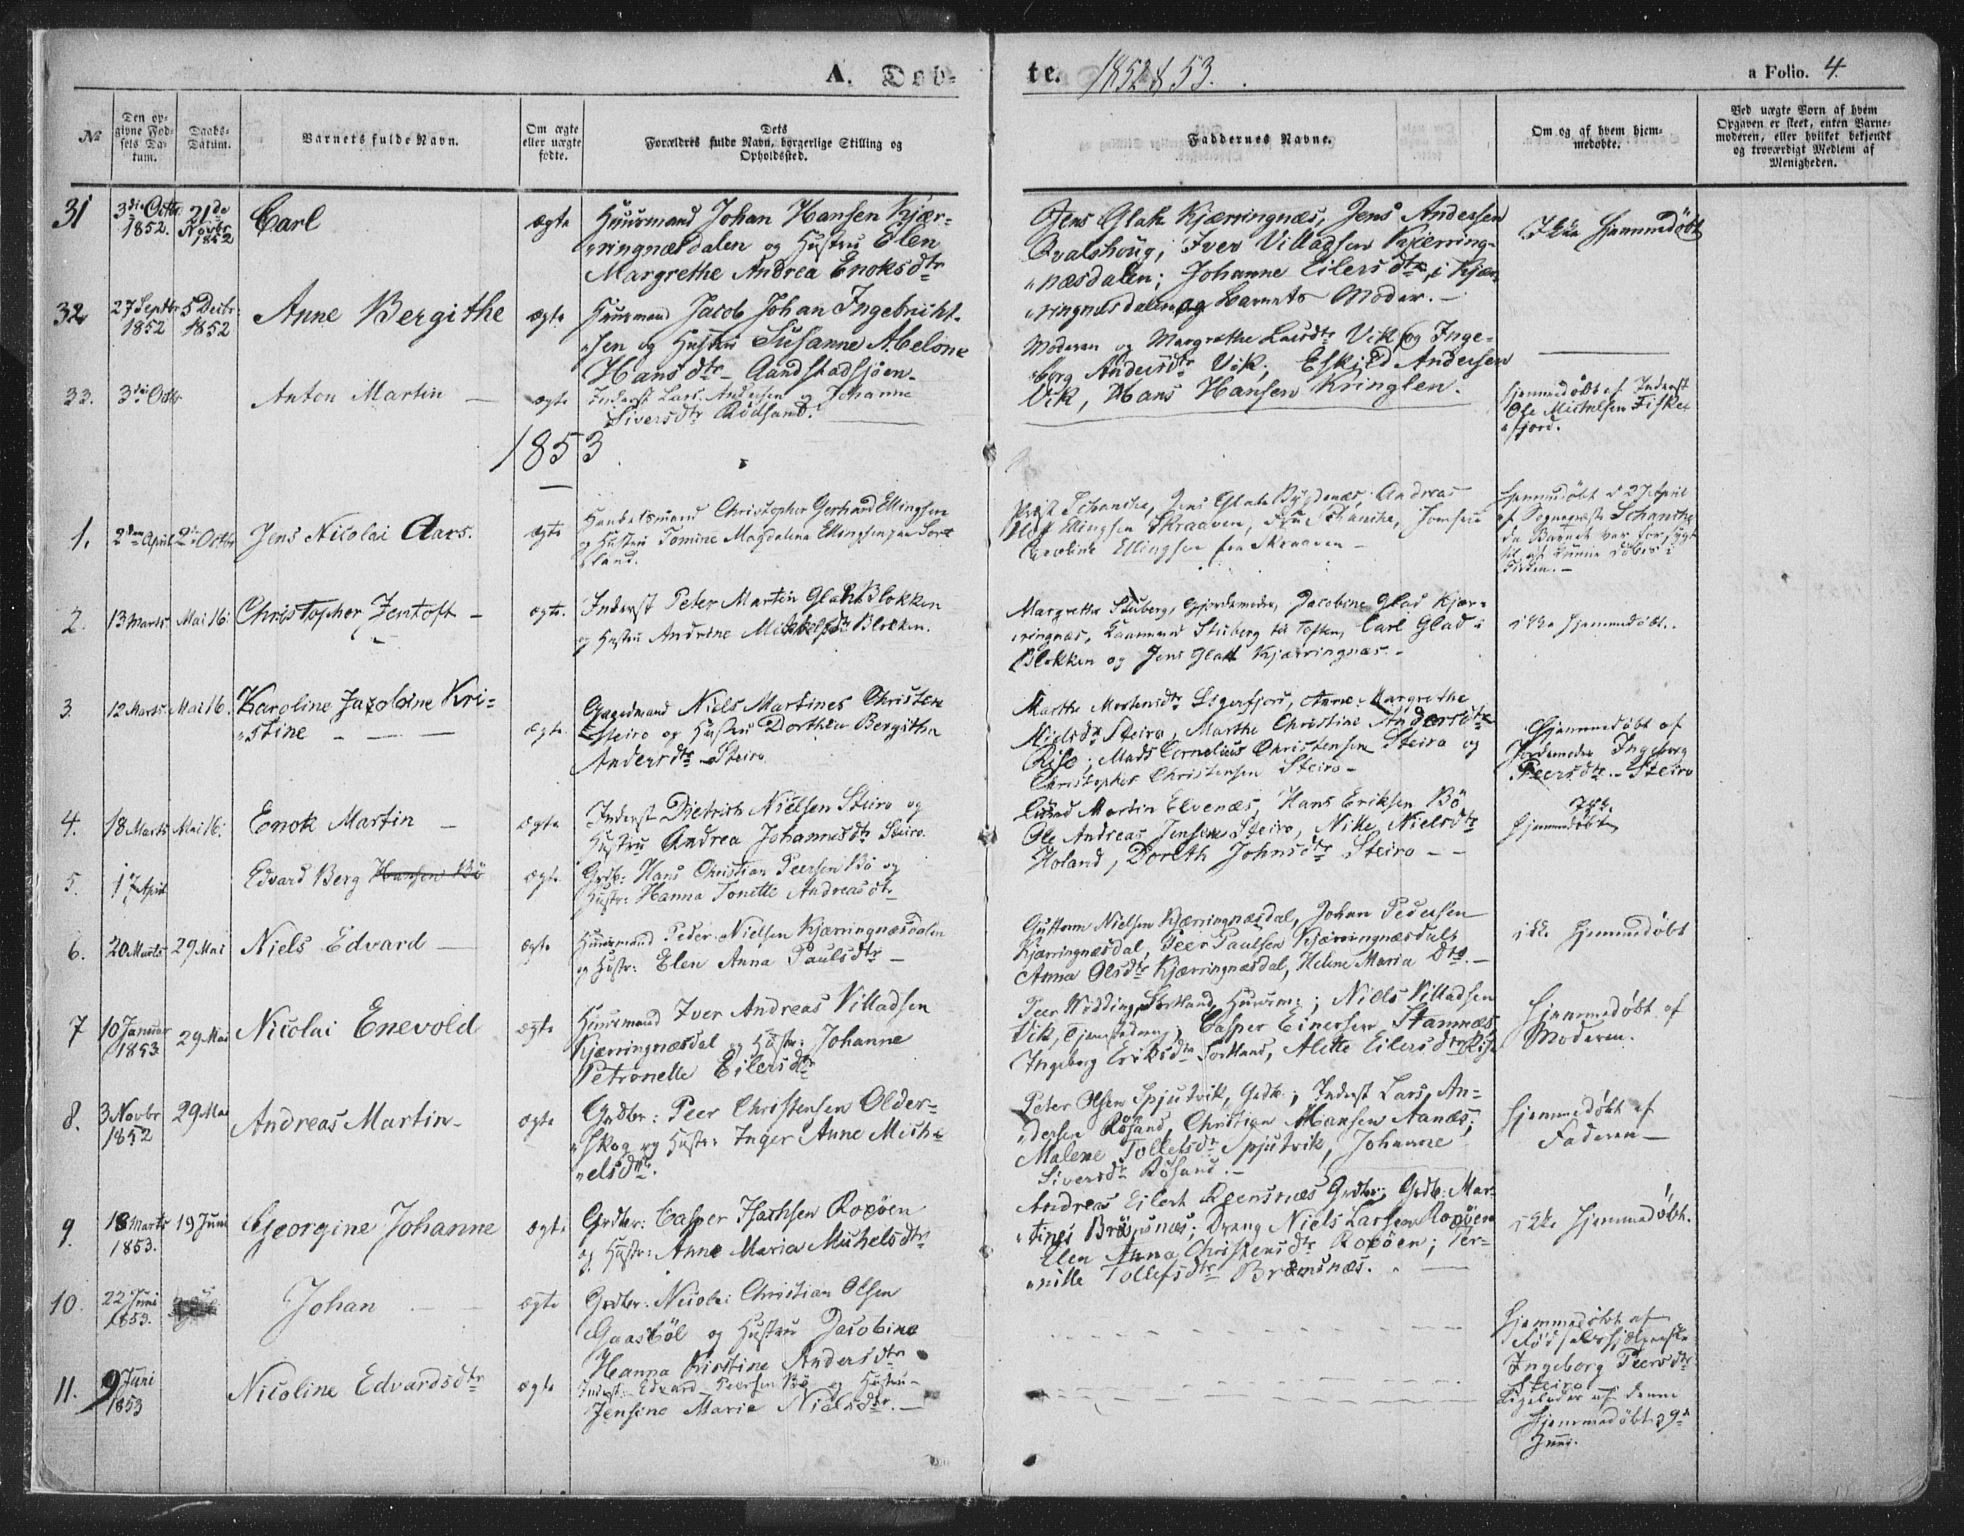 A. Døb-
te. 1852 & 53.
a Folio. 4.
№
Den op-
givne Fød-
sels Da-
tum.
Daabs-
Datum.
Barnets fulde Navn.
Om ægte
eller uægte
fødte.
Dets
Forældres fulde Navn, borgerlige Stilling og
Opholdssted.
Faddernes Navne.
Om og af hvem hjem-
medøbte.
Ved uægte Børn af hvem
Opgaven er skeet, enten Barne-
moderen, eller hvilket bekjendt
og troværdigt Medlem af
Menigheden.
31
3die Octbr
1852.
21de
Novbr
1852
Carl
ægte
Huusmand Johan Hansen Kjær-
ringnæsdalen og Hustru Elen
Margrethe Andrea Enoksdtr
Jens Glatz Kjærringnæs, Jens Andersen
Qvalshoug, Iver Villadsen Kjærring-
næsdalen; Johanne Eilersdtr, i Kjær-
ringnæsdalen og Barnets Moder. -
Ikke Hjemmedøbt
32
27 Septbr
1852
5 Decbr
1852
Anne Bergithe
ægte
Huusmand Jacob Johan Ingebricht-
sen og Hustru Susanne Abelone
Hansdtr - Aandstadsjøen.
Moderen og Margrethe Larsdtr Vik, og Inge-
borg Andersdtr Vik, Eskild Andersen
Vik, Hans Hansen Kringlen.
33.
3die Octbr
Anton Martin
ægte
Inderst Lars Andersen og Johanne
Siversdtr Rødsand.
Hjemmedøbt af Inderst
Ole Michelsen Fiske-
fjord.
1853
1.
2den April
2den Octbr
Jens Nicolai Aars.
ægte
Handelsmand Christopher Gerhard Ellingsen
og Hustru Tomine Magdalena Ellingsen paa Sort-
land.
Præst Schanche, Jens Glatz Bygdenæs, Andreas
Ellingsen Skraaven, Fru Schanche, Jomfru
Caroline Ellingsen fra Skraaven -
Hjemmedøbt d 27 April
af Sognepræst Schanche
da Barnet var for sygt
til at kunne døbes i
Kirken. -
2.
13 Marts
Mai 16.
Christopher Jentoft -
ægte.
Inderst Peter Martin Glad Blokken
og Hustru Andrine Mikkelsdtr Blokken.
Margrethe Stuberg, Gjordemoder, Jacobine Glad Kjær-
ringnæs, Kaarmand Stuberg til Toften, Carl Glad i
Blokken og Jens Glatt Kjærringnæs. -
ikke Hjemmedøbt.
3.
12 Marts
Mai 16.
Karoline Jacobine Kri-
stine
ægte
Gaardmand Niels Martines Christen
Steiro og Hustru Dorthea Bergitha
Andersdtr - Steiro
Marthe Mortensdtr Sigerfjord, Anne Margrethe
Nielsdtr Steiro, Marthe Christine Andersdtr
Rise; Mads Cornelius Christensen Steiro og
Christopher Christensen Steiro -
Hjemmedøbt af
Jordemoder Ingeborg
Peersdtr. - Steiro
4.
18 Marts
Mai 16.
Enok Martin
ægte
Inderst Dietrich Nielsen Steiro og
Hustru Andrea Johannesdtr Steiro.
Lund Martin Elvenæs, Hans Eriksen Bø
Ole Andreas Jensen Steiro, Nike Nielsdtr
Holand, Doreth Johnsdtr Steiro - -
Ikke
Hjemmedøbt
5.
17 April
Edvard Berg Hansen Bø
ægte
Grdb: Hans Christian Peersen Bø og
Hustr: Hanna Tonette Andreasdtr -
6.
20 Marts
29 Mai
Niels Edvard
ægte
Huusmand Peder Nielsen Kjærringnæsdalen
og Hustr: Elen Anna Paulsdtr -
Gustav Nielsen Kjærringnæsdal, Johan Pedersen
Kjærringnæsdal, Peer Paulsen Kjærringnæsdal
Anna Olsdtr Kjærringnæsdal, Helene Maria Dto. -
ikke Hjemmedøbt
7
10 Januar
1853
29 Mai
Nicolai Enevold
ægte
Huusmand Iver Andreas Villadsen
Kjærringnæsdal og Hustr: Johanne
Petronelle Eilersdtr
Peer Wedding, Sortland Huusm: ; Niels Villadsen
Vik, Casper Einersen Stamnæs
Ingeborg Eriksdtr Sortland, Alette Eilersdtr
Hjemmedøbt af
Moderen.
8.
3 Novbr
1852
29 Mai
Andreas Martin -
ægte
Grdbr: Peer Christensen Older-
skog og Hustr: Inger Anne Mich-
elsdtr.
Peter Olsen Spjutvik, Grdb: ; Inderst Lars An-
dersen Røsand, Christian Hansen Aanæs;
Malene Tollefsdtr Spjutvik, Johanne
Siversdtr Røsand. -
Hjemmedøbt af
Faderen -
9.
18 Marts
1853.
19 Juni
Georgine Johanne
ægte
Grdbr: Casper Isachsen Roxøen
og Hustr: Anne Maria Michelsdtr
Andreas Eilert Reensnæs Grdbr; Grdb: Mar-
tines Bremsnæs; Dreng Niels Larsen Roxøen
Elen Anna Christensdtr Roxøen; Per-
nille Tollefsdtr Bremsnæs.
ikke Hjemmedøbt.
10.
22 Juni
1853.
Johan
ægte
Grdbr: Nicolai Christian Olsen
Gaasbøl og Hustru Jacobine
Hanna Kirstine Andersdtr
Hjemmedøbt af
Fødselshjælperske
Ingeborg Peersdtr
Steiro
11.
9 Juni
1853
Nicoline Edvardsdtr
ægte
Inderst: Edvard Peersen Bø og Hustru -
Jensine Marie Nielsdtr. -
Ligeledes af denne
Hjemmedøbt d 9de
Juni.